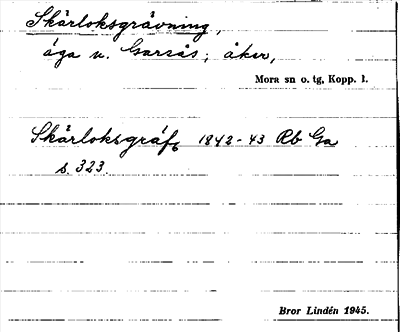 Skärloksgrävning,
äga n. Garsås; åker,
Mora sn o. tg, Kopp. l.
Skärloksgräf, 1842-43 Rb Ga
s. 323.
Bror Lindén 1945.